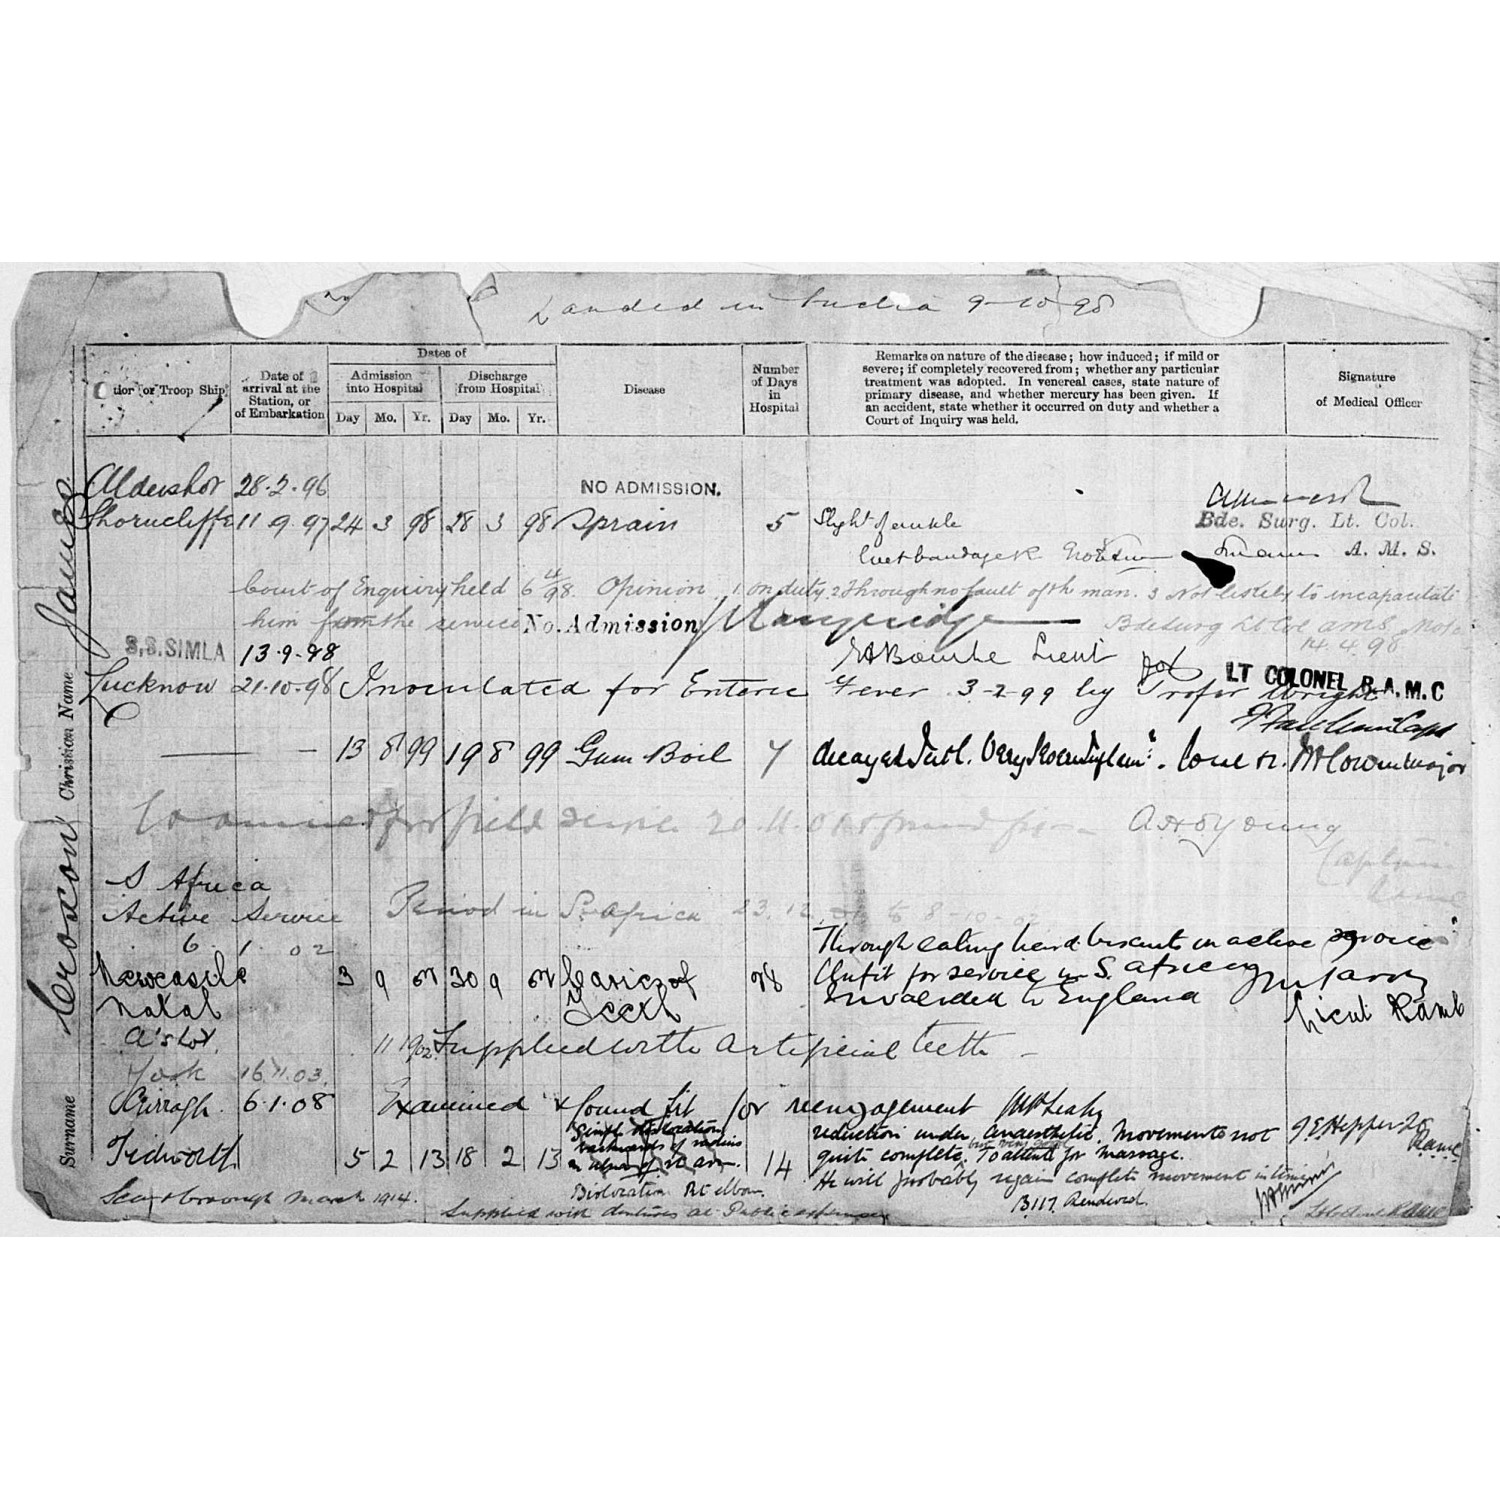 Landed in India 9-10-98
Station or Troop Ship
Date of arrival at the Station, or of Embarkation
Dates of
Admission into Hospital
Discharge from Hospital
Day Mo. Yr. Day Mo. Yr.
Disease
Number of Days in Hospital
Remarks on nature of the disease; how induced; if mild or
severe; if completely recovered from; whether any particular
treatment was adopted. In venereal cases, state nature of
primary disease, and whether mercury has been given. If
an accident, state whether it occurred on duty and whether a
Court of Inquiry was held.
Signature
of Medical Officer
Surname Croxon Christian Name James
Aldershot 28.2.96 NO ADMISSION.
Shorncliffe 11 9.97 24 3 98 28 3 98 Sprain 5 Slight of ankle
Bde. Surg. Lt. Col.
A. M. S.
Court of Enquiry held 6/4/98. Opinion. 1 on duty. 2 through no fault of th man. 3 Not likely to incapacitate
him from the service No. Admission Bde Surg Lt Col AMS
14.4.98
S.S. SIMLA 13.9.98 Bourke Lieut
LT COLONEL R.A.M.C
Lucknow 21.10.98 Inoculated for Enteric Fever 3-2-99 by Profsr Wright
13 8 99 19 8 99 Gum Boil 7 decayed Major
field 20.11.01 Young
Captain
S Africa
Active Service Period in S. Africa 23.12. to 8-10-02
6 1 02 Through eating hard biscuits on active service
Newcastle 3 9 02 30 9 02 Caries of 28 Unfit for service in S. Africa
Natal Teeth Invalided to England Lieut RAMC
A'shot 11 1902 Supplied with artificial teeth
York 16.11.03.
Curragh. 6.1.08 Examined & found fit for reengagement
Simple dislocation
backwards of radius
reduction under anaesthetic. Movements not
Tidworth 5 2 13 18 2 13 14 quite complete. To attend for massage.
He will probably regain complete movement in time
Dislocation Rt elbow. B117. Rendered.
Scarborough March 1914. Supplied with dentures at Public expense